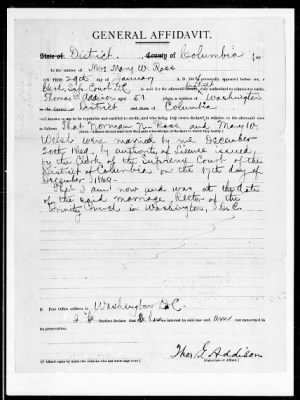 GENERAL AFFIDAVIT.
State of District, County of Columbia, ss:
In the matter of Mrs Mary W. Ross
ON THIS 29th day of January A. D. personally appeared before me,
Clerk, Sup. Court, D.C. in and for the aforesaid District
Thomas G. Addison aged 51 years, a resident of Washington
in the County of District and State of Columbia
well known to me to be reputable and entitled to credit, and who being duly sworn declares in relation to the aforesaid case
as follows:
That Norman Ross and Mary W.
Welsh were married by me December
20th 1869, by authority of License issued,
by the Clerk of the Supreme Court of the
District of Columbia on the 17th day of
December 1869.
That I am now and was, at the date
of the said marriage, Rector of the
Trinity Church in Washington, D.C.
Post Office address is Washington D.C.
further declare that he has no interest in said case and am not concerned in
its prosecution.
Thos. G. Addison
(Signature of Affiant.)